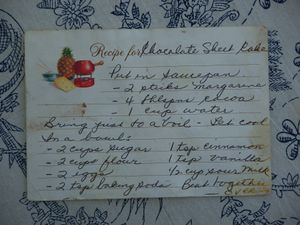 Recipe for Chocolate Sheet Cake
Put in saucepan
- 2 sticks margarine
- 4 tblspns cocoa
- 1 cup water
Bring just to a boil - Let cool
In a bowl:
- 2 cups sugar 1 tsp cinnamon
- 2 cups flour 1 tsp vanilla
- 2 eggs 1/2 cup sour milk
- 2 tsp baking soda Beat together